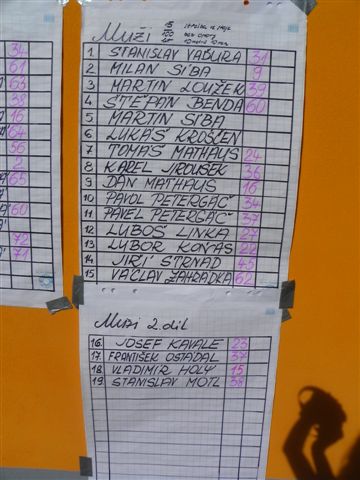 34
61
63
38
16
64
56
2
65
60
72
71
Muži
1 STANISLAV VAĎURA 31
2 MILAN SIBA 9
3 MARTIN LOUŽEK 39
4 ŠTĚPÁN BENDA 60
5 MARTIN SIBA
6 LUKÁŠ KROŠLEN
7 TOMÁŠ MATHAUS 24
8 KAREL JIROUŠEK 36
9 DAN MATHAUS 16
10 PAVOL PETERGÁČ 34
11 PAVEL PETERGÁČ 37
12 LUBOŠ LINKA 27
13 LUBOR KOVÁŠ 22
14 JIŘÍ STRNAD 43
15 VÁCLAV ZAHRÁDKA 62
Muži 2. díl
16. JOSEF KAVALE 23
17. FRANTIŠEK OSTÁDAL 37
18 VLADIMÍR HOLÝ 15
19 STANISLAV MOTL 38